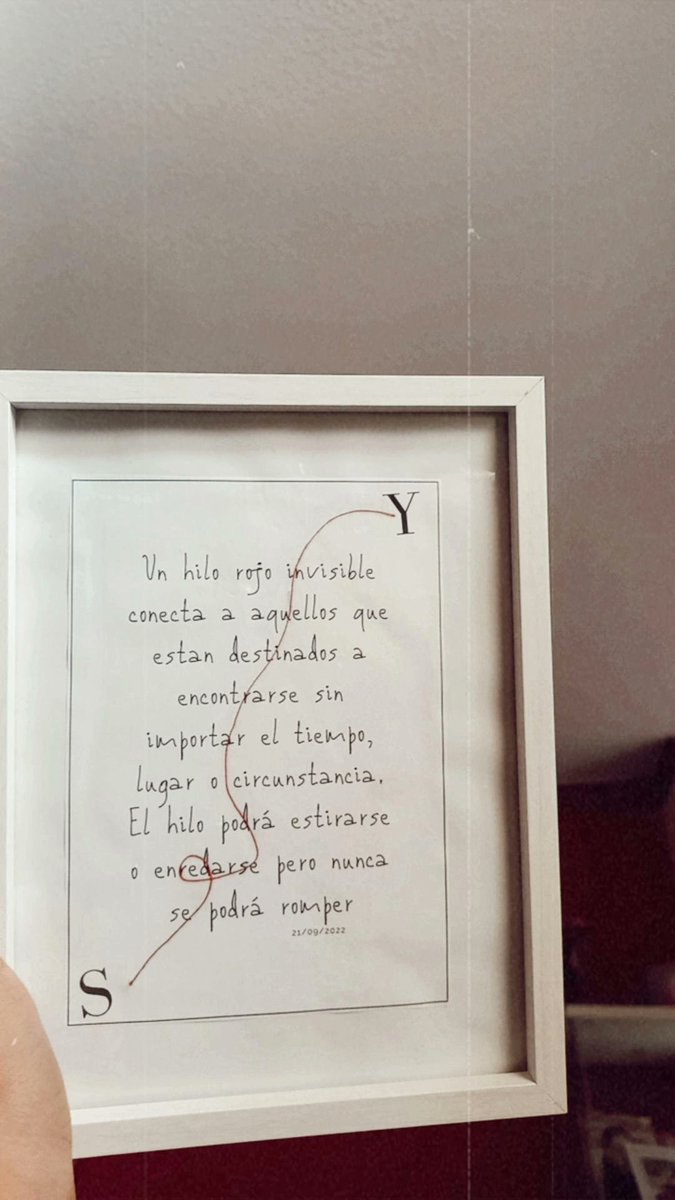 Y
Un hilo rojo invisible
conecta a aquellos que
estan destinados a
encontrarse sin
importar el tiempo,
lugar o circunstancia.
El hilo podrá estirarse
o enredarse pero nunca
se podrá romper
21/09/2022
S